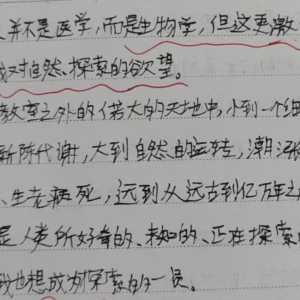 并不是医学，而是生物学，但这更激
对自然、探索的欲望。
教室之外的偌大的天地中，小到一个细
新陈代谢，大到自然的运转，潮涨
、生老病死，远到从远古到亿万年之
是人类所好奇的、未知的、正在探索
我也想成为探索的一员。